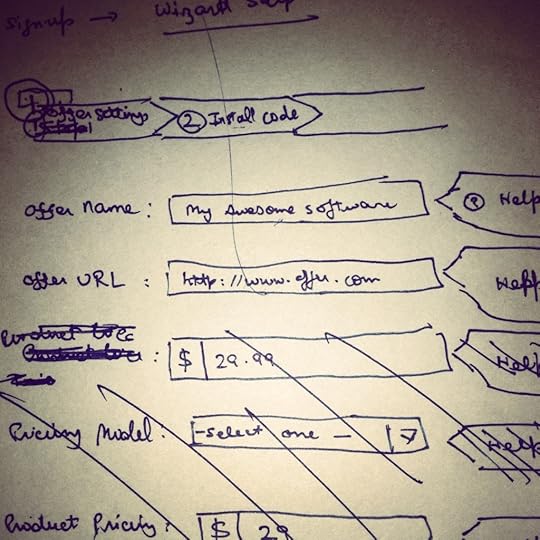 Signup → Wizard Setup
1 Offer settings 2 Install code
Offer Name: My Awesome Software ? Help
Offer URL : http://www.offer.com Help
: $ 29.99 Help
Pricing Model: -Select one - Help
Product Pricing: $ 29